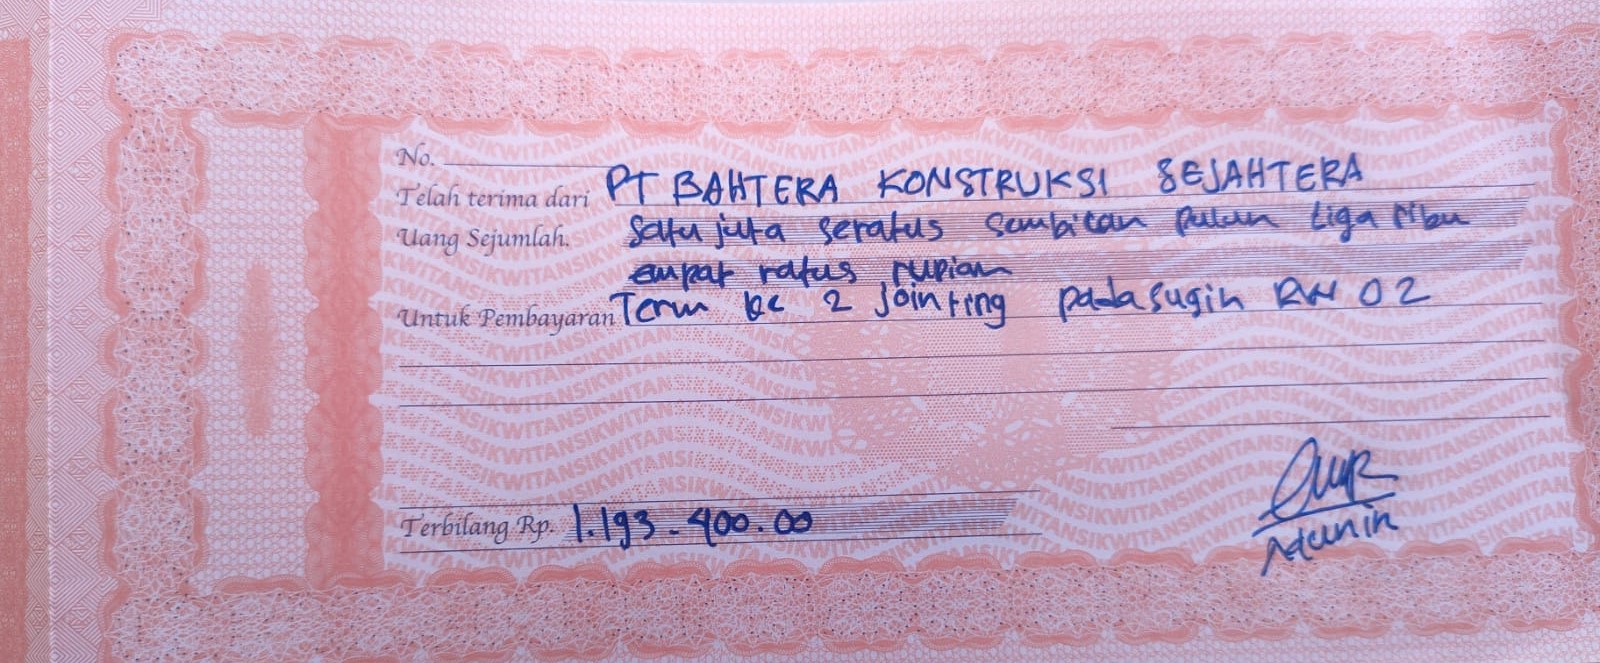 No.
Telah terima dari PT BAHTERA KONSTRUKSI SEJAHTERA
Uang Sejumlah. Satu juta seratus sembilan puluh tiga ribu
empat ratus rupiah
Untuk Pembayaran Term ke 2 jointing padasugih RW 02
Terbilang Rp. 1.193.400.00